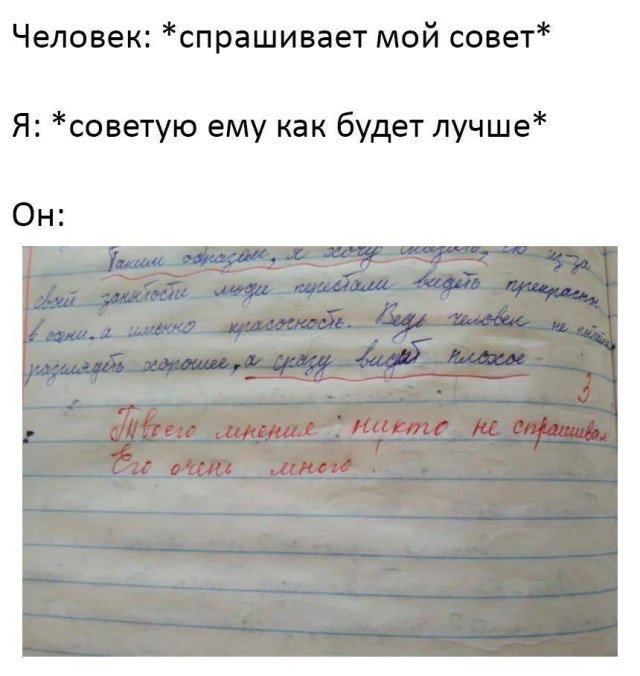 Человек: *спрашивает мой совет*
Я: *советую ему как будет лучше*
Он:
Таким образом, я хочу сказать, из-за
своей занятости люди перестали видеть
в а именно красосность. Ведь человек не
разглядеть хорошее, а сразу видит плохое
3
Твоего мнения никто не спрашивал
Его очень много!